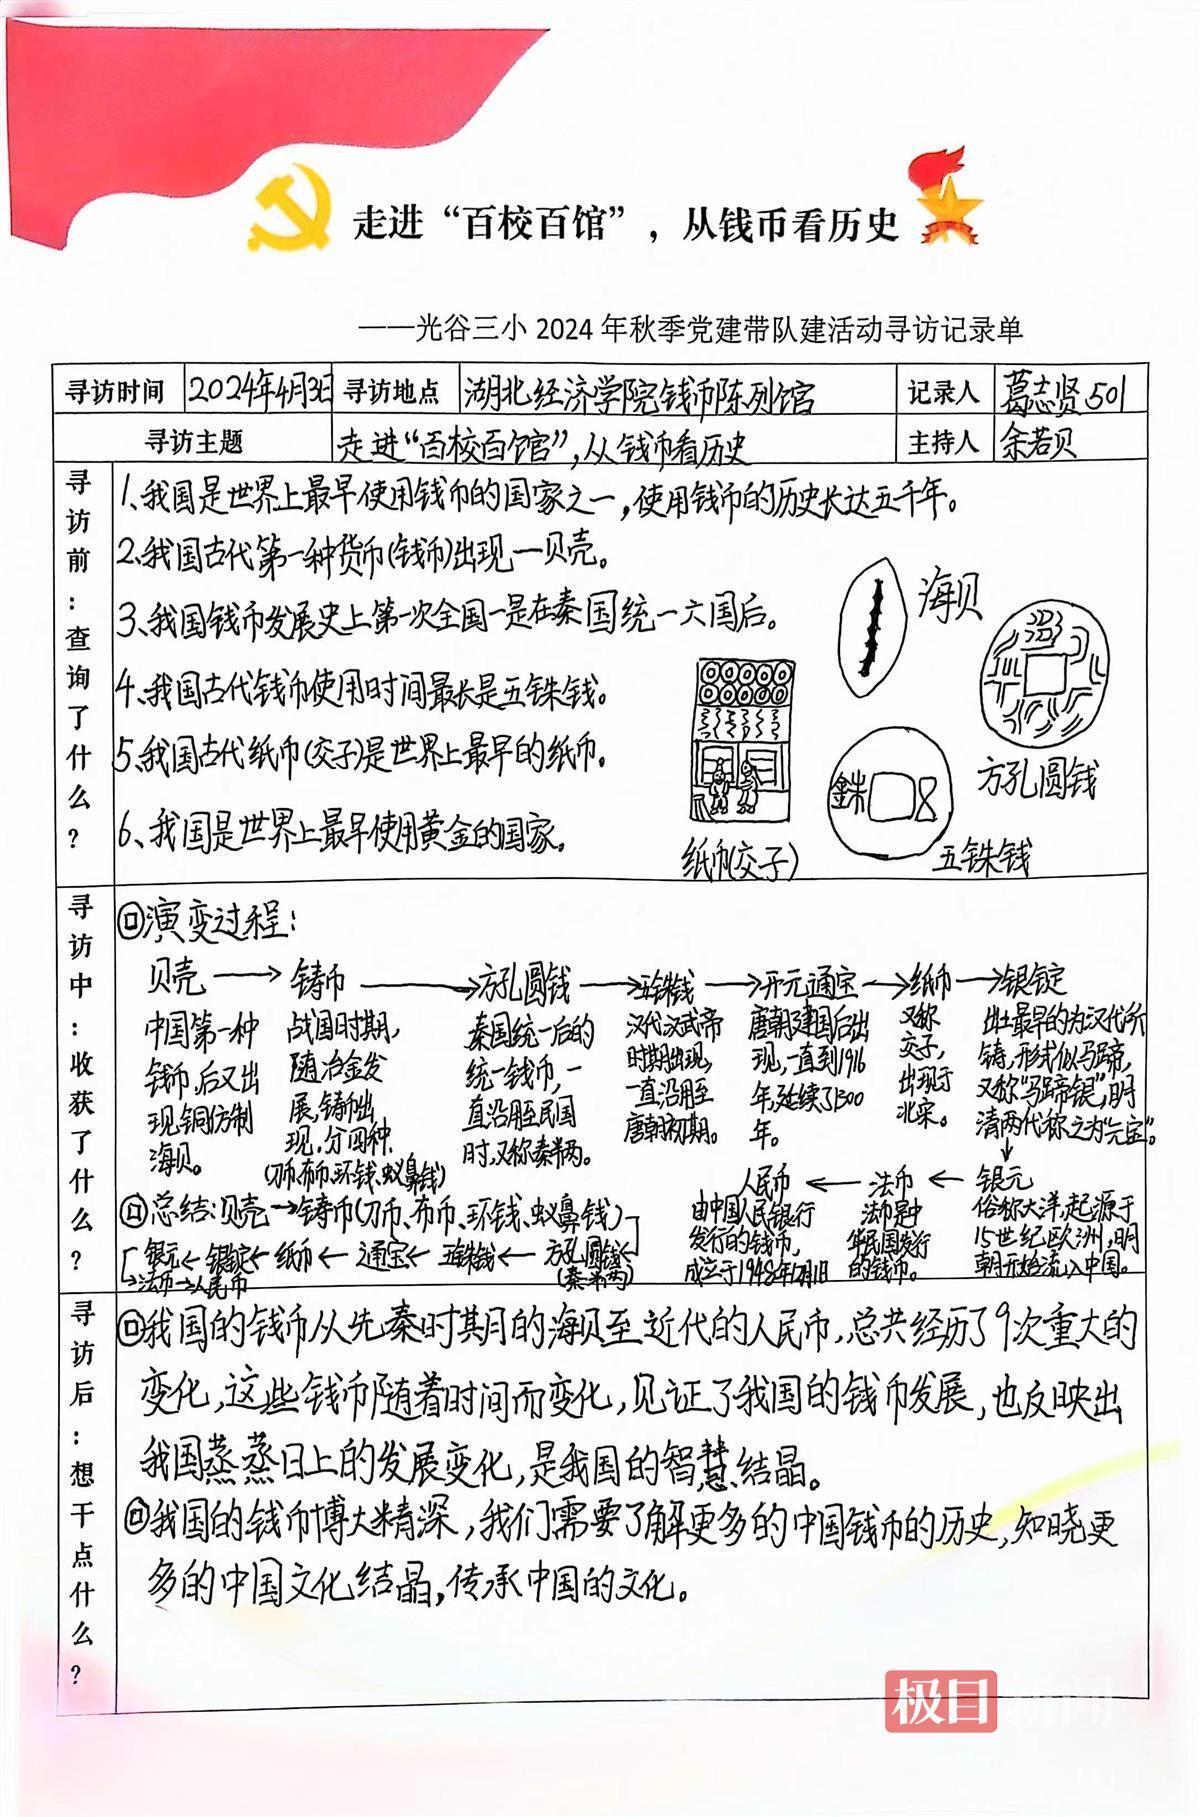 走进“百校百馆”，从钱币看历史
——光谷三小2024年秋季党建带队建活动寻访记录单
寻访时间 2024年4月3日 寻访地点 湖北经济学院钱币陈列馆 记录人 葛志贤501
寻访主题 走进“百校百馆”，从钱币看历史 主持人 余若贝
寻访前：查询了什么？
1、我国是世界上最早使用钱币的国家之一，使用钱币的历史长达五千年。
2、我国古代第一种货币(钱币)出现—贝壳。
3、我国钱币发展史上第一次全国一是在秦国统一六国后。
4、我国古代钱币使用时间最长是五铢钱。
5、我国古代纸币(交子)是世界上最早的纸币。
6、我国是世界上最早使用黄金的国家。
海贝
方孔圆钱
銖 又
五铢钱
纸币(交子)
寻访中：收获了什么？
演变过程：
贝壳→铸币→方孔圆钱→五铢钱→开元通宝→纸币→银锭
中国第一种
钱币，后又出
现铜仿制
海贝。
战国时期，
随冶金发
展，铸币出
现，分四种.
(刀币、布币、环钱、蚁鼻钱)
秦国统一后的
统一钱币，一
直沿用至民国
时，又称秦半两。
汉代汉武帝
时期出现，
一直沿用至
唐朝初期。
唐朝建国后出
现，一直到1916
年，延续了1300
年。
又称
交子，
出现于
北宋。
出土最早的为汉代所
铸，形式似马蹄，
又称“马蹄银”，明
清两代称之为“元宝”。
↓
人民币←法币←银元
由中国人民银行
发行的钱币，
成立于1948年12月1日
法币是中
华民国发行
的钱币。
俗称大洋，起源于
15世纪欧洲，明
朝开始流入中国。
总结：贝壳→铸币(刀币、布币、环钱、蚁鼻钱)
银元←银锭←纸币←通宝←五铢钱←方孔圆钱
(秦半两)
→法币→人民币
寻访后：想干点什么？
我国的钱币从先秦时期的海贝至近代的人民币，总共经历了9次重大的
变化，这些钱币随着时间而变化，见证了我国的钱币发展，也反映出
我国蒸蒸日上的发展变化，是我国的智慧结晶。
我国的钱币博大精深，我们需要了解更多的中国钱币的历史，知晓更
多的中国文化结晶，传承中国的文化。
极目新闻